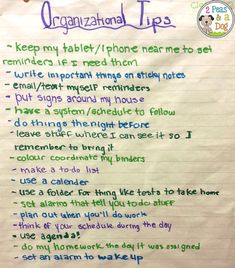 Organizational Tips
2 Peas
& a
Dog
- keep my tablet/iphone near me to set
reminders if I need them
- write important things on sticky notes
- email/text myself reminders
- put signs around my house
- have a system/schedule to follow
- do things the night before
- leave stuff where I can see it so I
remember to bring it
- colour coordinate my binders
- make a to-do list
- use a calender
- use a folder for thing like tests to take home
- set alarms that tell you to do stuff
- plan out when you'll do work
- think of your schedule during the day
- use agenda!
- do my homework the day it was assigned
- set an alarm to wake up